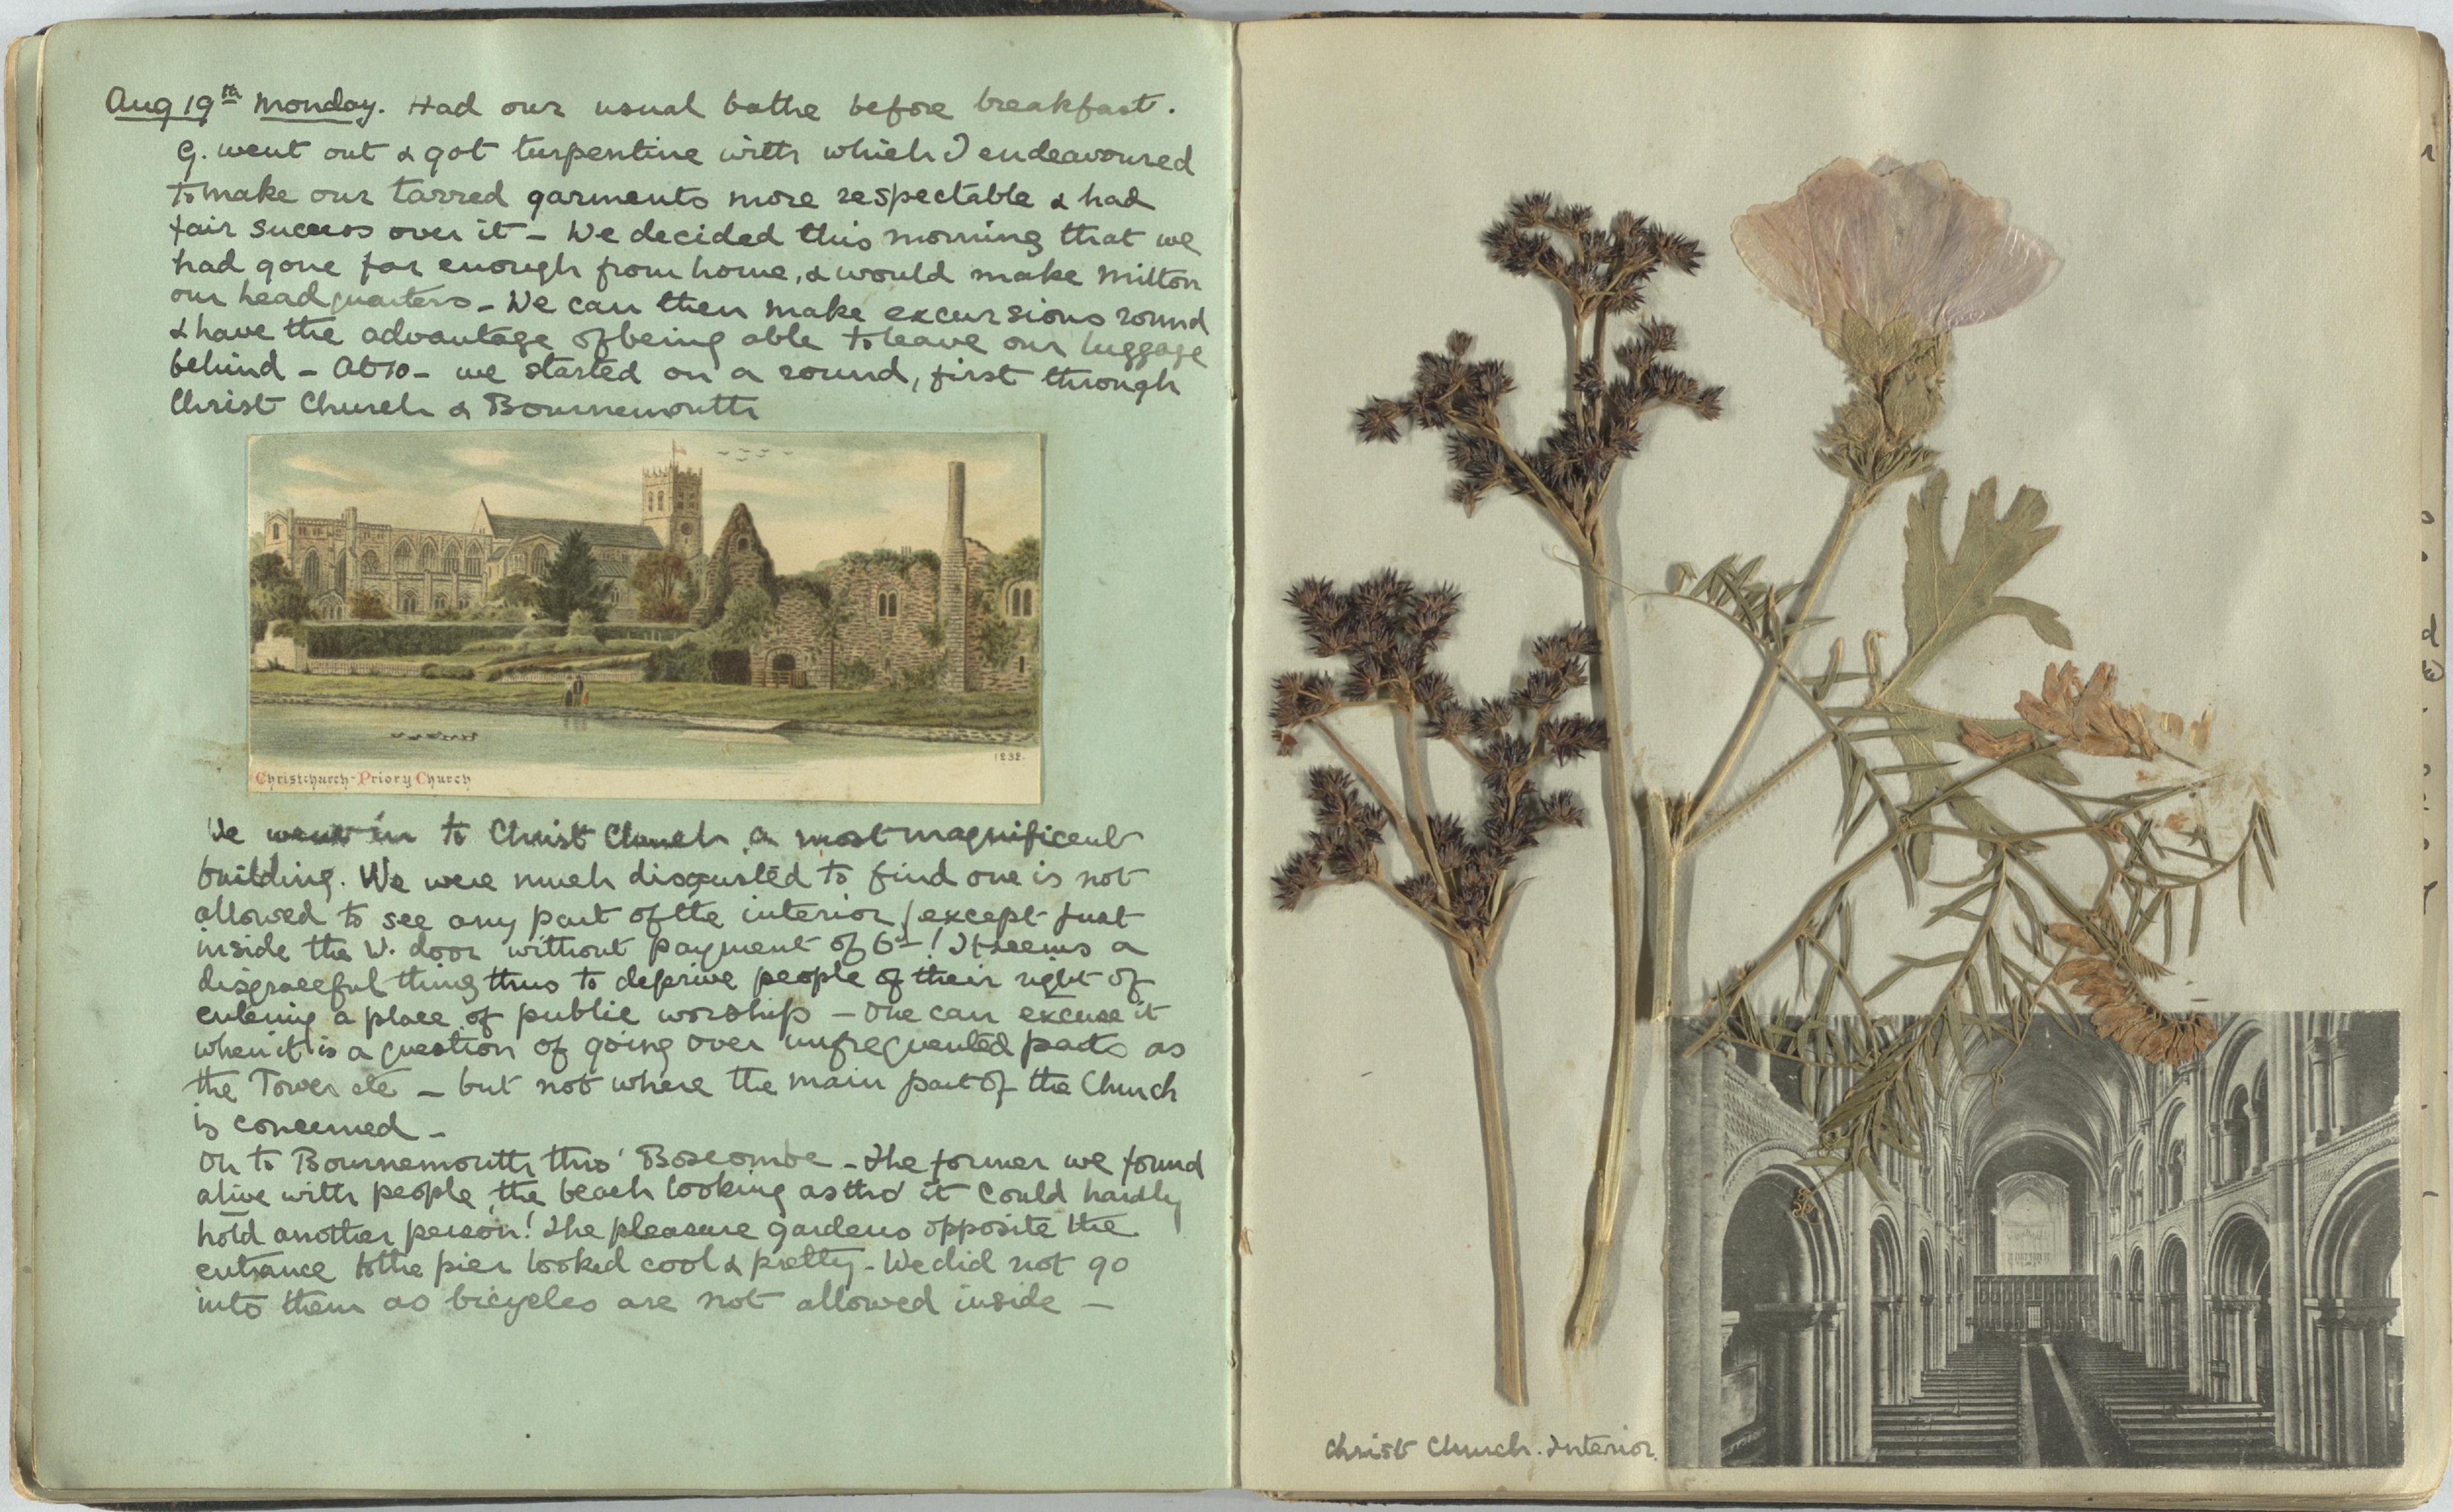 Aug 19th Monday. Had our usual bathe before breakfast.
G. went out & got turpentine with which I endeavoured
to make our tarred garments more respectable & had
fair success over it – We decided this morning that we
had gone far enough from home, & would make Milton
our headquarters – We can then make excursions round
& have the advantage of being able to leave our luggage
behind – At 10 – we started on a round, first through
Christ Church & Bournemouth
1232.
Christchurch-Priory Church
We went in to Christ Church, a most magnificent
building. We were much disgusted to find one is not
allowed to see any part of the interior (except just
inside the W. door without payment of 6d – ! It seems a
disgraceful thing thus to deprive people of their right of
entering a place of public worship – One can excuse it
when it is a question of going over unfrequented parts as
the Tower etc – but not where the main part of the Church
is concerned –
On to Bournemouth thro' Boscombe – The former we found
alive with people, the beach looking as tho' it could hardly
hold another person! The pleasure gardens opposite the
entrance to the pier looked cool & pretty – We did not go
into them as bicycles are not allowed inside –
Christ Church. Interior.